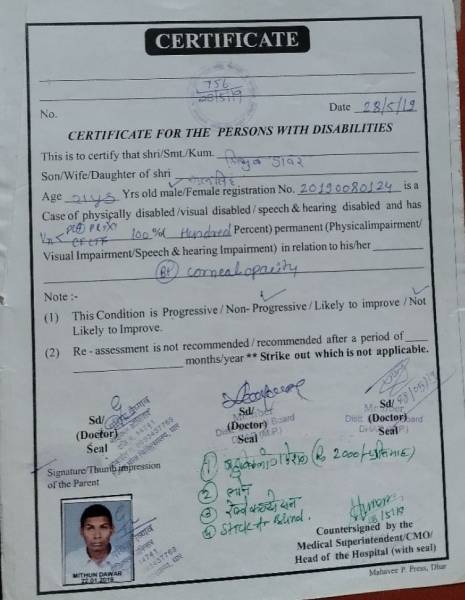 CERTIFICATE
756
28/5/19
No. Date 28/5/19
CERTIFICATE FOR THE PERSONS WITH DISABILITIES
This is to certify that shri/Smt./Kum. मिथुन डावर
Son/Wife/Daughter of shri
Age Yrs old male/Female registration No. 20190080124 is a
Case of physically disabled/visual disabled/speech & hearing disabled and has
100% Hundred Percent) permanent (Physicalimpairment/
Visual Impairment/Speech & hearing Impairment) in relation to his/her
corneal opacity
Note :-
(1) This Condition is Progressive/Non-Progressive/Likely to improve/Not
Likely to Improve.
(2) Re-assessment is not recommended/recommended after a period of
months/year ** Strike out which is not applicable.
Sd/ Sd/ Sd/
(Doctor) (Doctor) (Doctor)
Seal Seal Seal
Signature/Thumb impression
of the Parent
①
②
③
④ Stick for Blind.
28/5/19
Countersigned by the
Medical Superintendent/CMO/
Head of the Hospital (with seal)
MITHUN DAWAR
22.01.2019
Mahavee P. Press, Dhar